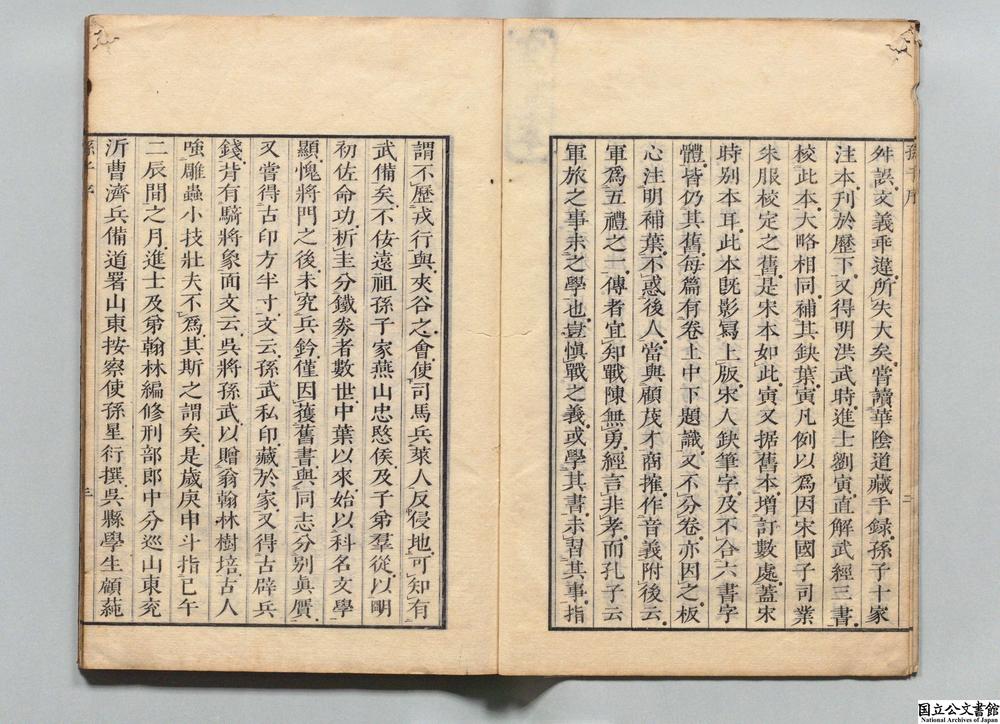 舛誤文義乖違所失大矣嘗讀華陰道藏手録孫子十家
注本刊於歷下又得明洪武時進士劉寅直解武經三書
校此本大略相同補其鈌葉寅凡例以爲因宋國子司業
朱服校定之舊是宋本如此寅又据舊本增訂數處葢宋
時别本耳此本旣影寫上版宋人鈌筆字及不合六書字
體皆仍其舊每篇有卷上中下題識又不分卷亦因之板
心注明補葉不惑後人當與顧茂才商搉作音義附後云
軍爲五禮之一傳者宜知戰陳無勇經言非孝而孔子云
軍旅之事未之學也豈愼戰之義或學其書未習其事指
謂不歷戎行與夾谷之會使司馬兵萊人反侵地可知有
武備矣不佞遠祖孫子家燕山忠愍侯及子弟羣從以明
初佐命功析圭分鐵券者數世中葉以來始以科名文學
顯愧將門之後未究兵鈐僅因獲舊書與同志分别眞贋
又嘗得古印方半寸文云孫武私印藏於家又得古辟兵
錢背有騎將象面文云吳將孫武以贈翁翰林樹培古人
嗤雕蟲小技壯夫不爲其斯之謂矣是歲庚申斗指巳午
二辰間之月進士及弟翰林編修刑部郎中分巡山東兖
沂曹濟兵備道署山東按察使孫星衍撰吳縣學生顧蒓
国立公文書館
National Archives of Japan